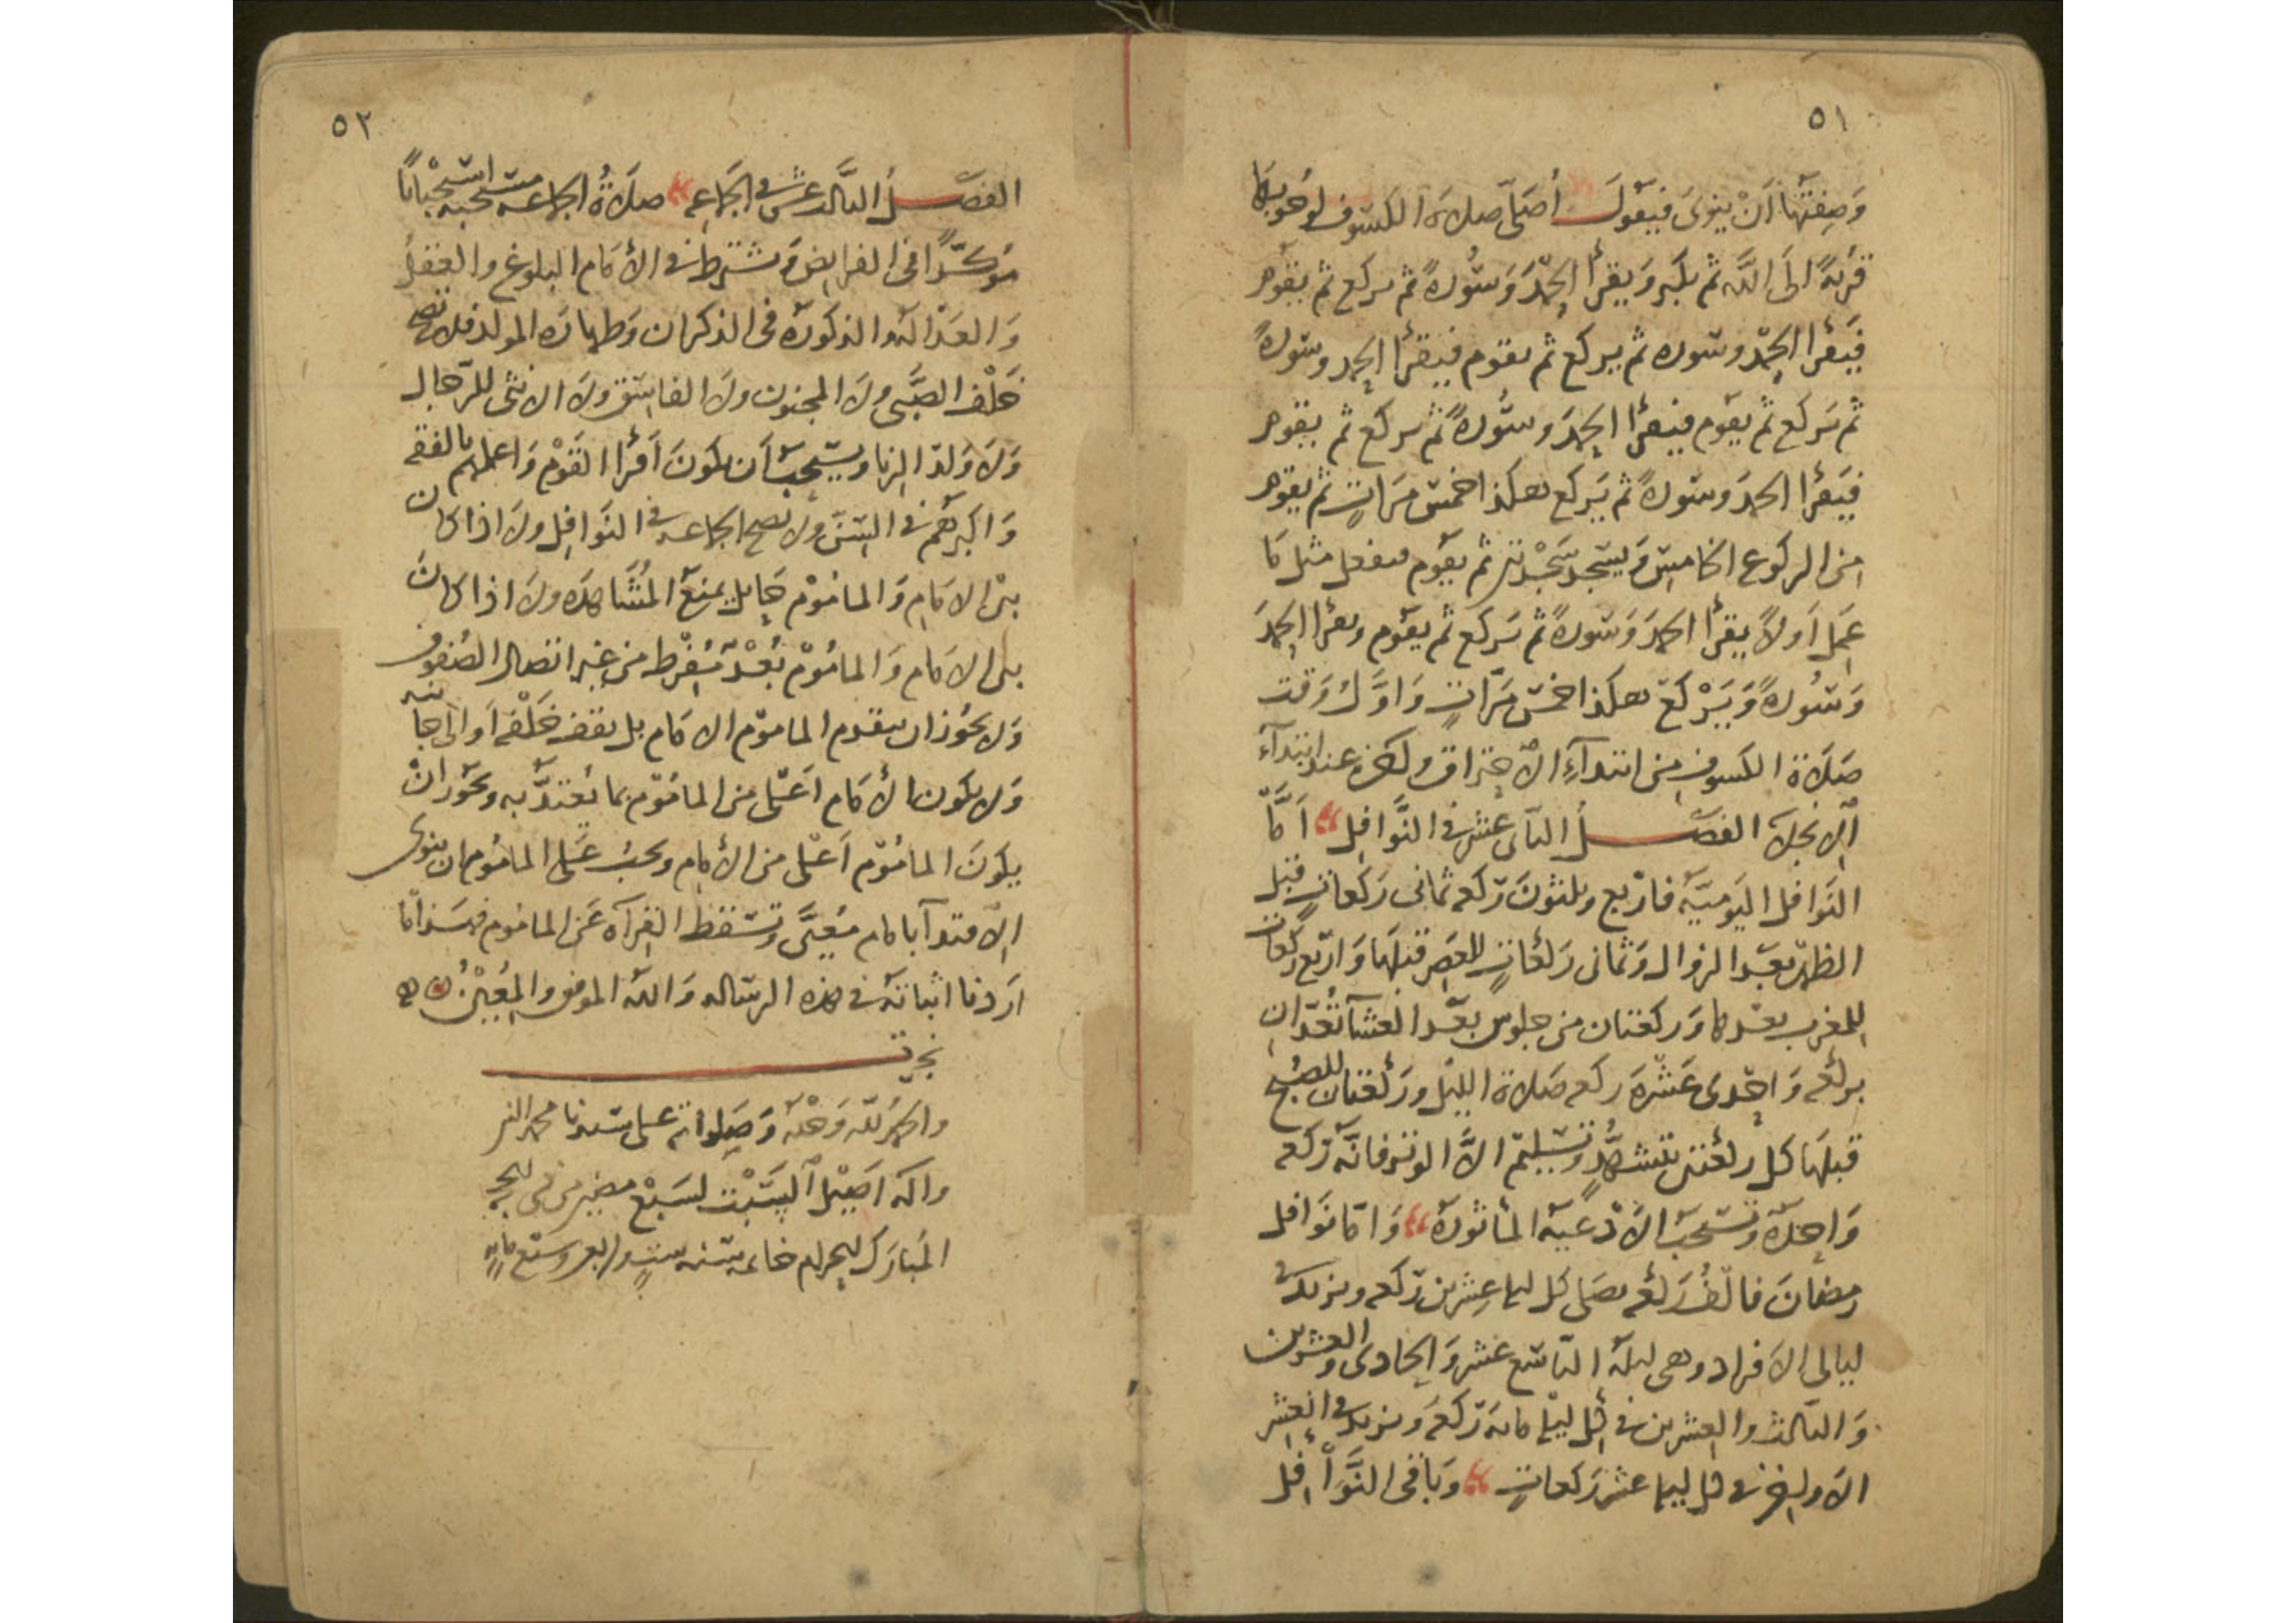 ٥١
وَصِفَتُهَا أَنْ ينوىَ فيَقولَ أُصَلّى صلاةَ الكسوف لوُجُوبهَا
قُربةً الَى اللَّه ثم يكبر وَيقرأُ الحَمْدَ وَسُورةً ثم يركع ثم يقوم
فَيَقرأ الحمْد وسوره ثم يركع ثم يقوم فيقرأ الحمد وسورةً
ثم يَركع ثم يقوم فيقرأ الحمدَ وسُورةً ثم يركع ثم يقوم
فيَقرأ الحمدَ وسورةً ثم يَركع هكذا خمسَ مَرّاتٍ ثم يقوم
من الركوع الخامسِ وَيسجد سَجْدتين ثم يقوم فيفعل مثل مَا
عَمِلَ اَولاً يقرأ الحمدَ وَسورةً ثم يَركع ثم يقوم ويقرأ الحمدَ
وَسُورةً وَيَرْكعُ هكذا خمسَ مَرّاتٍ وَاوّلُ وَقت
صَلاَةِ الكسوف من ابتدآءِ الاحتراق ولكن عند ابتدآءِ
الانجلاَ الفصــلُ الثانى عشر فى النَّوافِل اَمَّا
النَّوافل اليَوميّة فاَرْبع وثلثونَ رَكعه ثمانى رَكعاتٍ قبل
الظهر بَعْد الزوال وَثمانى رَكعَاتٍ للعَصر قبلهَا وَاربَع رَكعَات
للمغرب بعْدها وَركعتان من جلوسٍ بَعْد العشآ تُعَدّانِ
بركعه وَاِحْدى عَشْرةَ ركعه صَلاة الليْل ورَكعَتان للصُبح
قبلهَا كل ركعتين بتشهّدٍ وَتسْليم الاَّ الوتر فانَّهُ رَكعه
وَاحِدَة وتسْتَحبّ الاَدْعيَه المأثورهُ وَامَّا نوَافل
رمضانَ فالْفُ رَكعه يصَلى كل ليلة عِشرين رَكعه ويزيد فى
ليالى الاَفراد وهى ليلة التاسع عشر وَالحادى والعشرين
وَالثالث والعشرين فى كل ليلة مائة رَكعة ويزيد فى العشر
الاَواخر فى كل ليلة عشر رَكعاتٍ وَباقى النَّوَافِل
٥٢
الفصــلُ الثالث عَشر فى الجَمَاعه صلاَةُ الجماعه مستحبه استحْبَابًا
مؤكّدًا فى الفرايض وَيشترط فى الأمَام البلوغ والعَقلُ
وَالعَدالة والذكورة فى الذكران وَطهارة المولد فلا تصح
خَلْف الصَّبى ولاَ المجنون ولاَ الفاسق ولاَ الانثى للرّجال
وَلاَ وَلدِ الزنا ويستحبّ اَن يكونَ اَقرأ القَوْم وَاعلمهم بالفقه
وَاكبرهم فى السِّنّ ولا تصح الجماعه فى النَوافِل ولاَ اذا كان
بين الامَام وَالماموْم حَايل يمنعُ المُشَاهَده ولاَ اذا كانَ
بين الامَام وَالماموْم بُعْدٌ مُفرط من غير اتصال الصُفوف
وَلا يجوز ان يتقدم الماموم الامَام بل يقف خَلْفه اَو الى جانبه
وَلا يكون الأمَام اَعْلى من المامُوم بما يُعتدُّ به ويجوز انْ
يكونَ المامُوم اَعْلى من الأمام ويجبُ عَلى المامُوم ان ينوىَ
الاقتدآ بامام مُعيَّن وتَسقط القرآة عَن الماموم فهَذا مَا
ارَدنا اثباتَهُ فى هذه الرسَاله وَاللّه الموفق والمُعِيْنُ
نجزت
والحمدُ للّه وَحْدَهُ وَصَلواته على سيّدنا محمد النبى
واله اَصِيْل السَّبْت لسَبْع مضين من ذى الحجه
المُبَارك الحرام خاتمة سَنه ستٍ واربع وستع مايةٍ